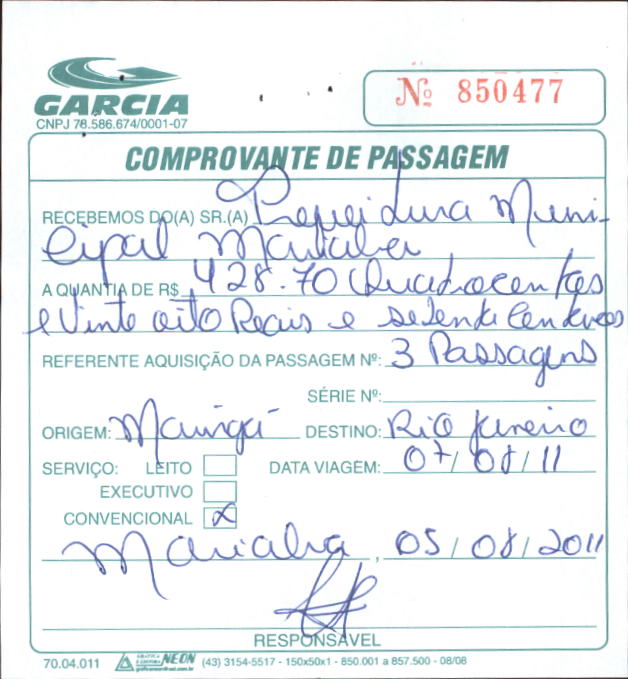 GARCIA
CNPJ 78.586.674/0001-07
Nº 850477
COMPROVANTE DE PASSAGEM
RECEBEMOS DO(A) SR.(A) Prefeitura Muni-
cipal Marialva
A QUANTIA DE R$ 428.70 Quatrocentos
e Vinte oito Reais e setenta Centavos
REFERENTE AQUISIÇÃO DA PASSAGEM Nº: 3 Passagens
SÉRIE Nº:
ORIGEM: Maringá DESTINO: Rio Janeiro
SERVIÇO: LEITO DATA VIAGEM: 07/08/11
EXECUTIVO
CONVENCIONAL X
Marialva, 05/08/2011
RESPONSÁVEL
70.04.011 GRÁFICA E EDITORA NEON (43) 3154-5517 - 150x50x1 - 850.001 a 857.500 - 08/08